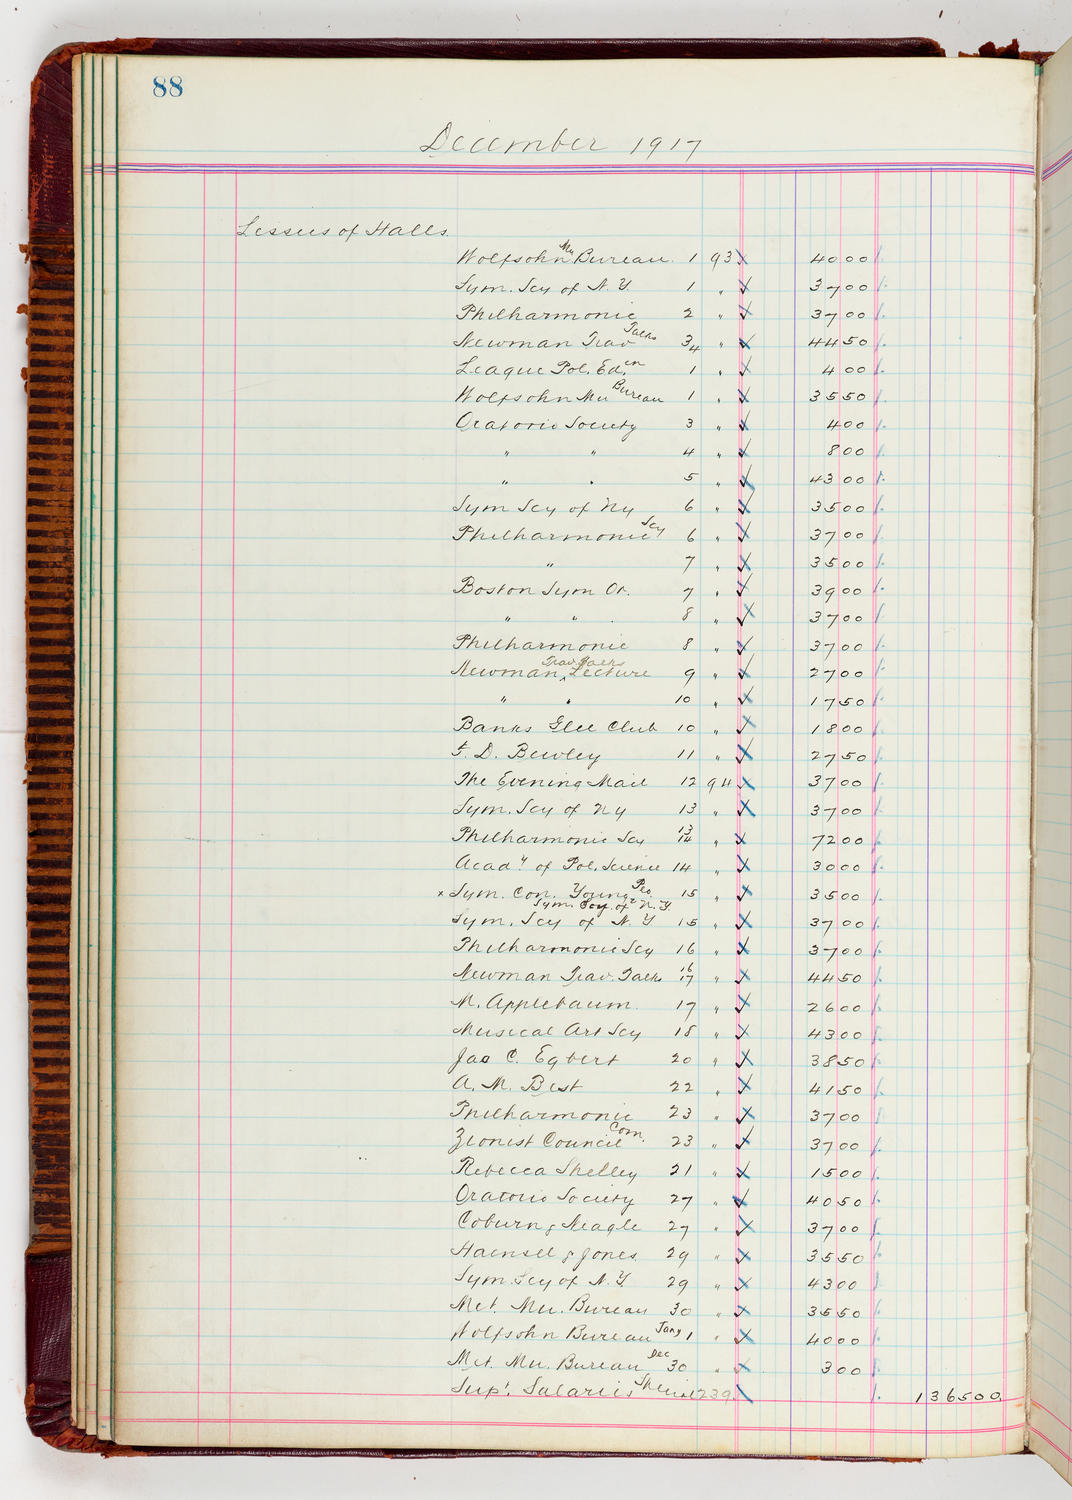 88
December 1917
Lessees of Halls
Wolfsohn Mu Bureau 1 93 4000
Sym. Scy of N. Y. 1 " 3700
Philharmonic 2 " 3700
Newman Trav Talks 3 4 " 4450
League Pol. Edⁿ 1 " 400
Wolfsohn Mu Bureau 1 " 3550
Oratorio Society 3 " 400
" " 4 " 800
" " 5 " 4300
Sym Scy of Ny 6 " 3500
Philharmonic Scy 6 " 3700
" 7 " 3500
Boston Sym Or. 7 " 3900
" " 8 " 3700
Philharmonic 8 " 3700
Newman Trav Talks Lecture 9 " 2700
" " 10 " 1750
Banks Glee Club 10 " 1800
F. D. Bewley 11 " 2750
The Evening Mail 12 94 3700
Sym. Scy of Ny 13 " 3700
Philharmonic Scy 13 14 " 7200
Acady of Pol. Science 14 " 3000
x Sym. Con. Young Peo. 15 " 3500
Sym. Scy of N. Y.
Sym. Scy of N. Y 15 " 3700
Philharmonic Scy 16 " 3700
Newman Trav. Talks 16 17 " 4450
M. Applebaum 17 " 2600
Musical Art Scy 18 " 4300
Jas C. Egbert 20 " 3850
A. M. Best 22 " 4150
Philharmonic 23 " 3700
Zionist Council Com. 23 " 3700
Rebecca Shelley 21 " 1500
Oratorio Society 27 " 4050
Coburn & Neagle 27 " 3700
Haensel & Jones 29 " 3550
Sym. Scy of N. Y. 29 " 4300
Met. Mu. Bureau 30 " 3550
Wolfsohn Bureau Jany 1 " 4000
Met. Mu. Bureau Dec 30 " 300
Supt. Salaries 239 136500